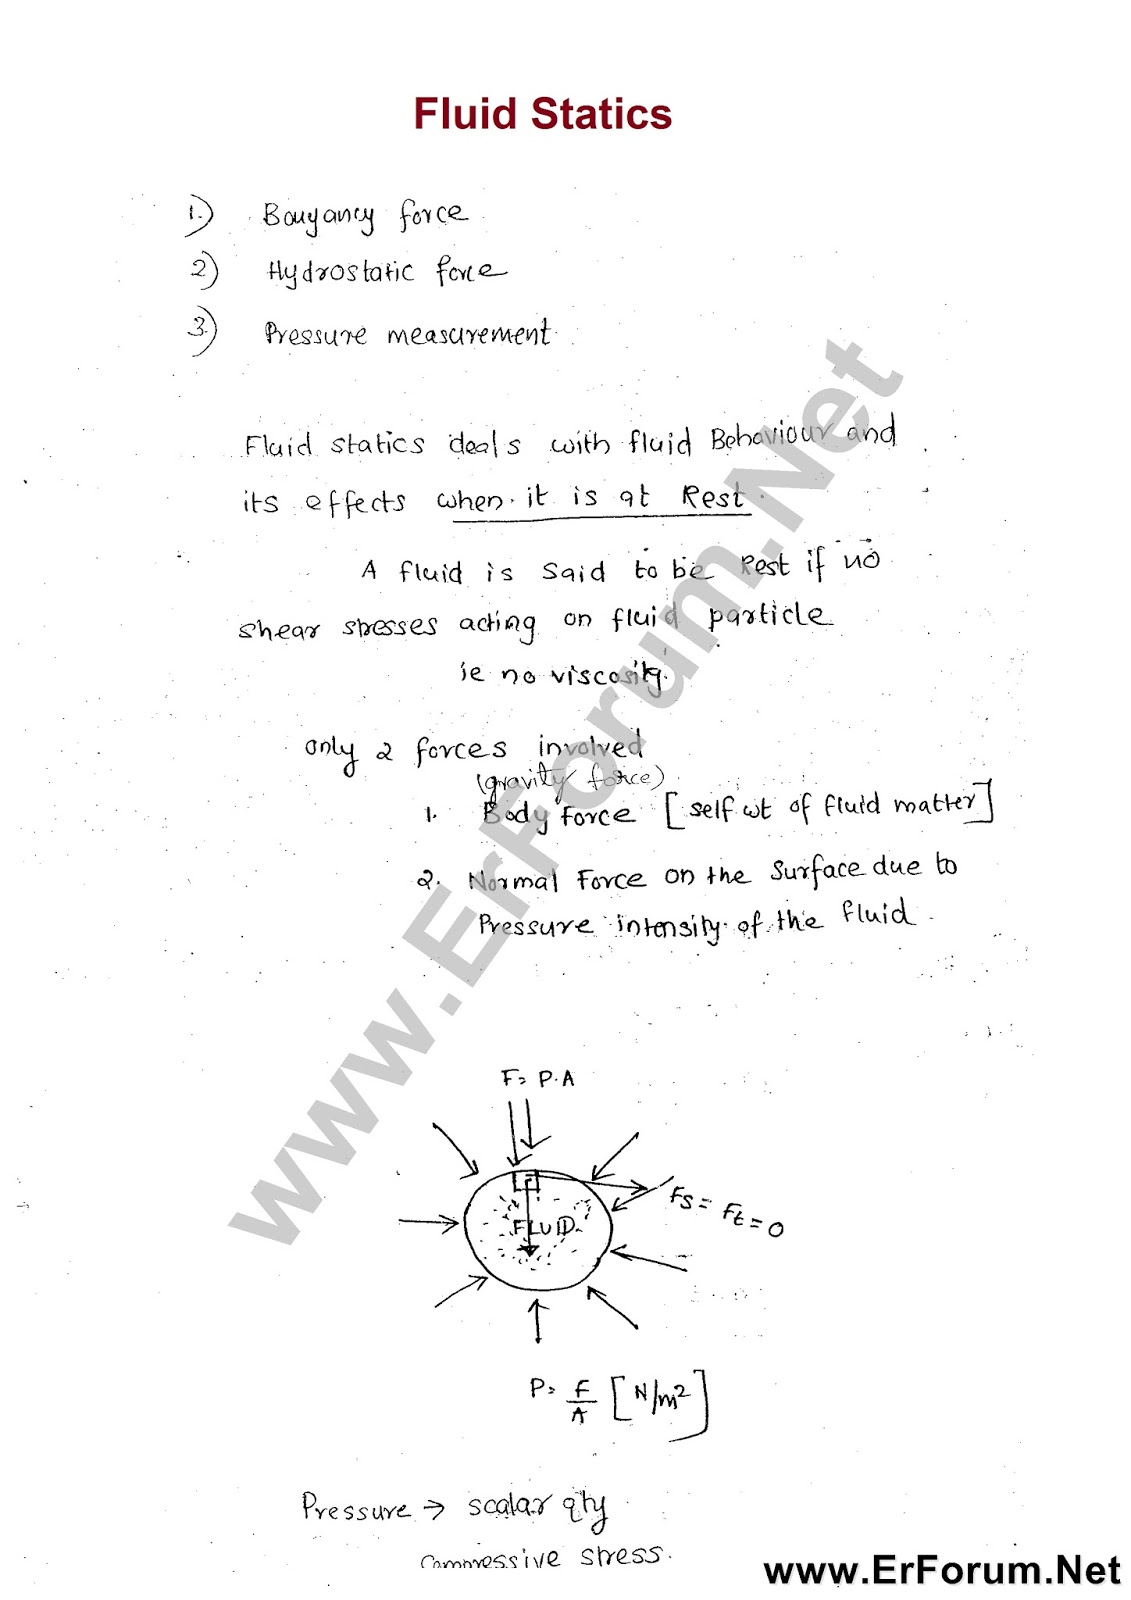 Fluid Statics
1.) Bouyancy force
2) Hydrostatic force
3.) Pressure measurement.
Fluid statics deals with fluid Behaviour and
its effects when it is at Rest.
A fluid is said to be Rest if no
shear stresses acting on fluid particle
ie no viscosity.
only 2 forces involved
(gravity force)
1. Body force [self wt of fluid matter]
2. Normal Force on the Surface due to
Pressure intensity of the fluid.
F= P.A
FLUID
Fs = Ft = 0
P= F/A [N/m²]
Pressure → scalar qty
Commressive stress.
www.ErForum.Net
www.ErForum.Net